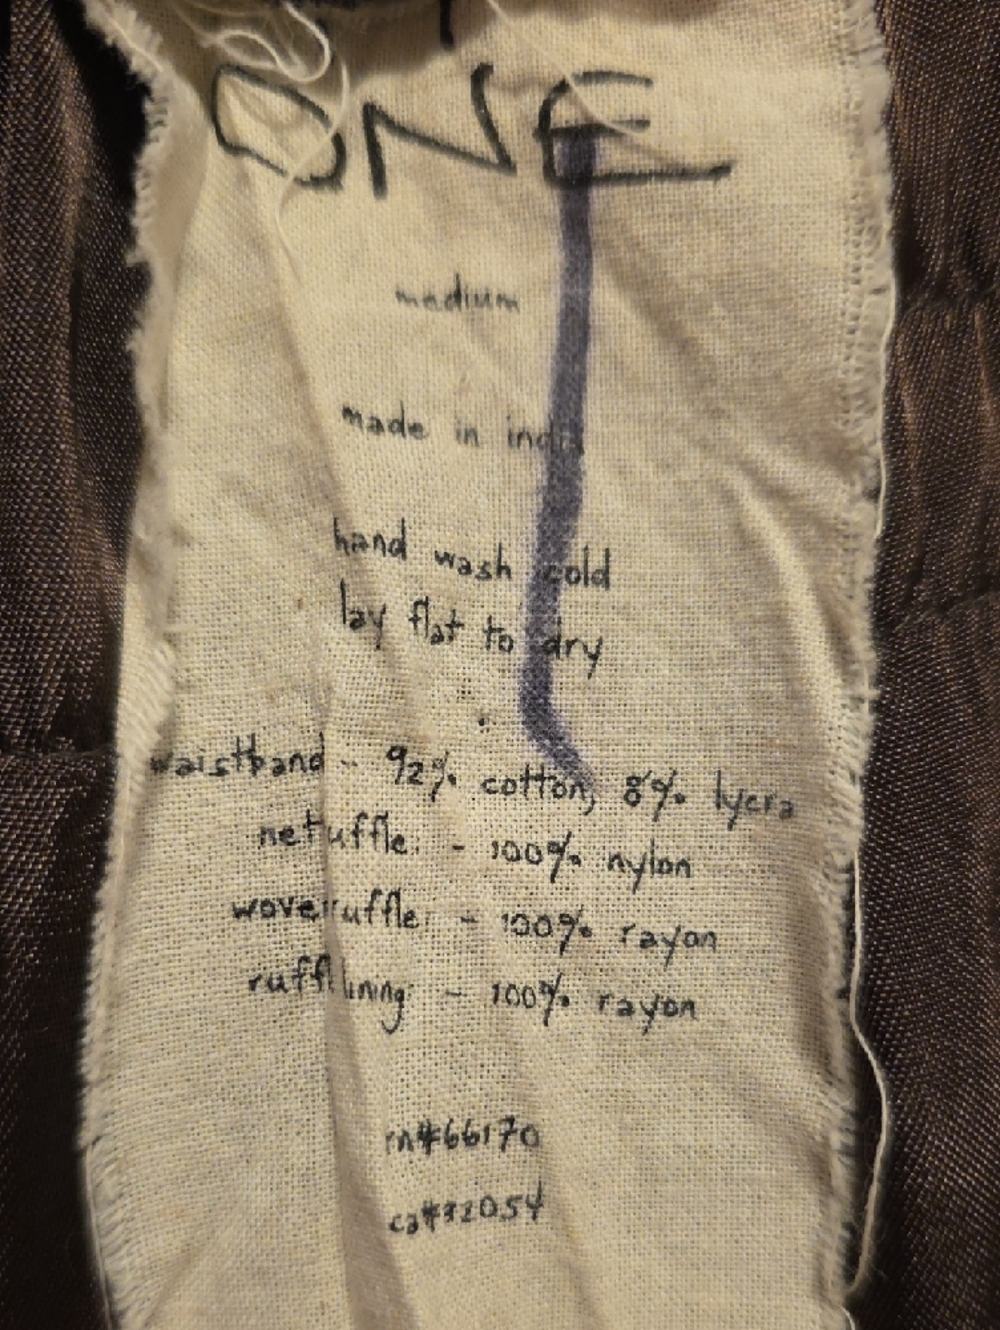 ONE
medium
made in india
hand wash cold
lay flat to dry
waistband - 92% cotton, 8% lycra
net uffle - 100% nylon
wove ruffle - 100% rayon
ruffl lining - 100% rayon
rn#66170
ca#32054